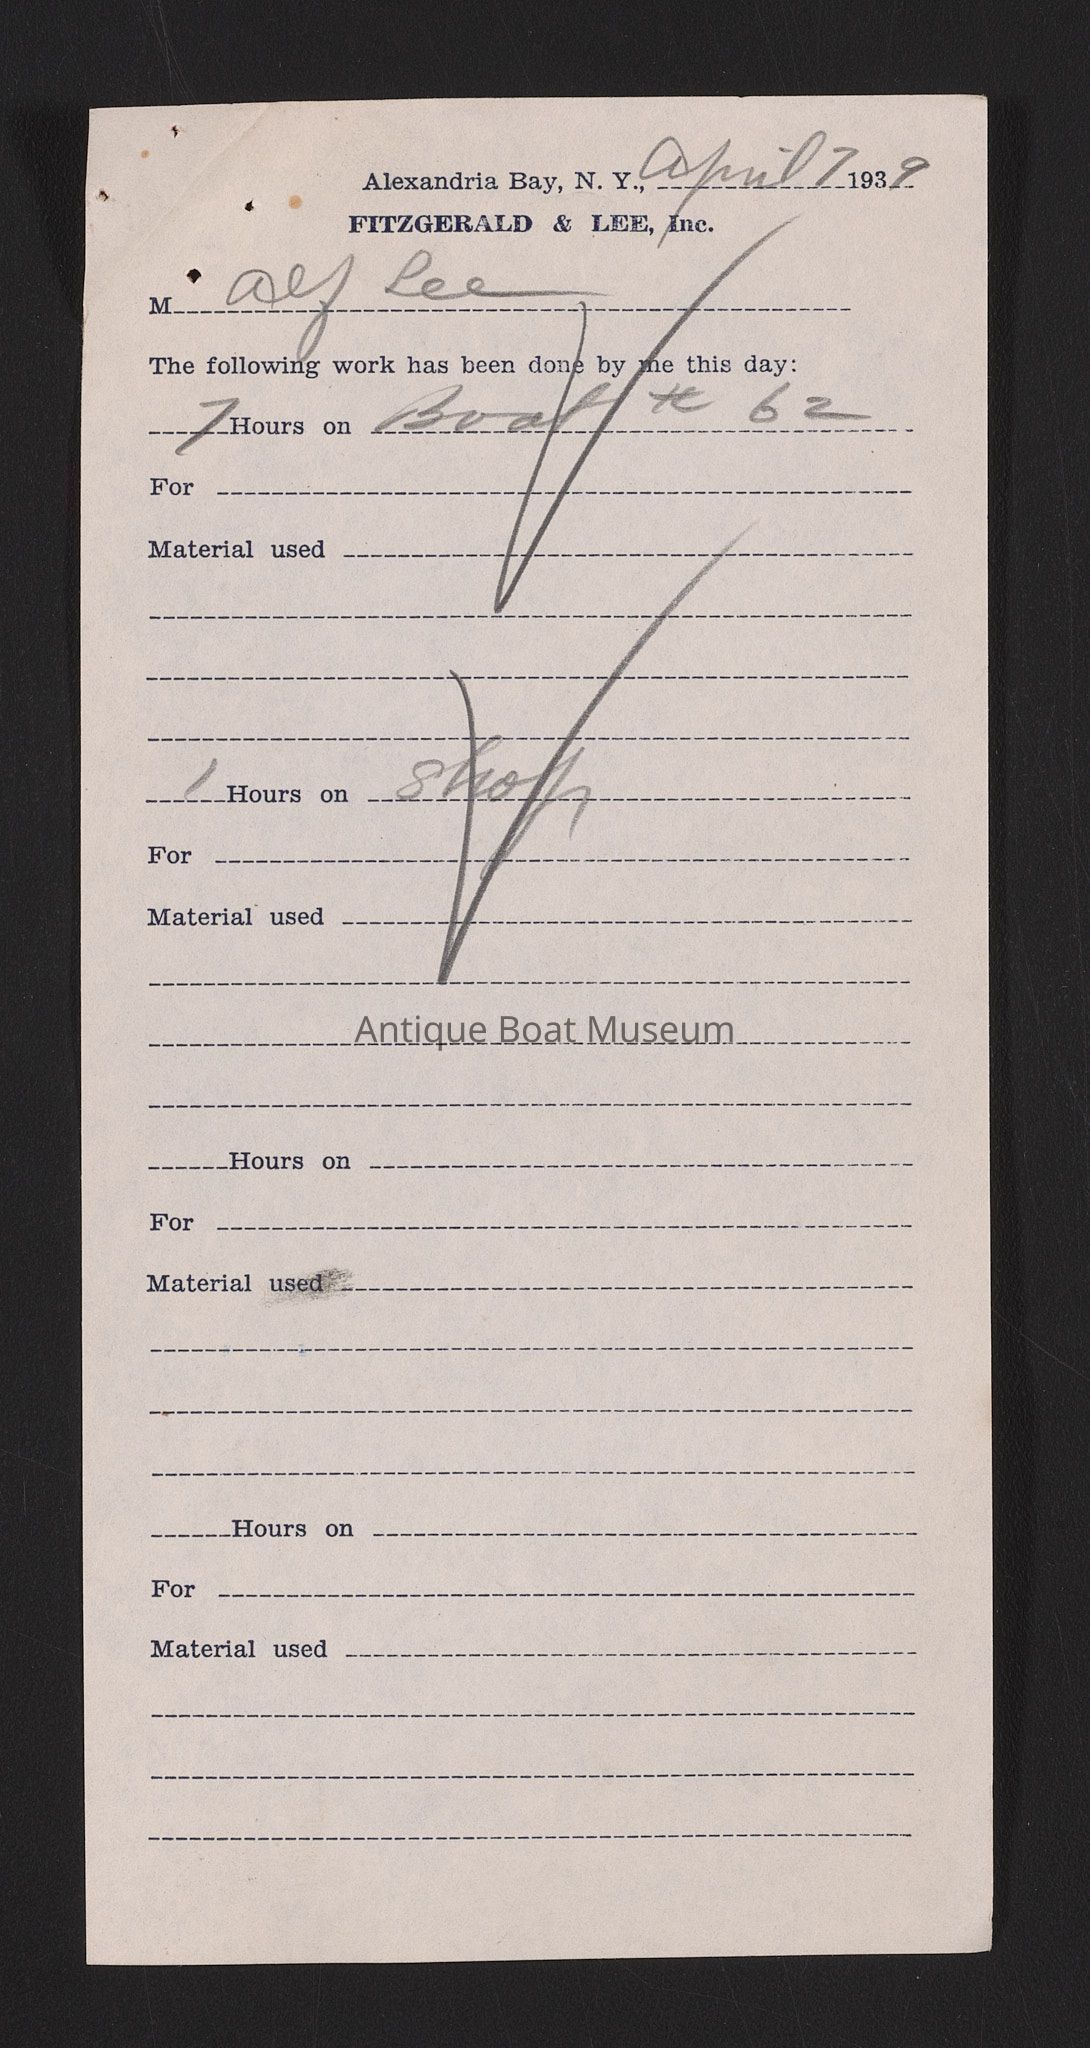 Alexandria Bay, N. Y., April 7 1939
FITZGERALD & LEE, Inc.
M Alf Lee
The following work has been done by me this day:
7 Hours on Boat # 62
For
Material used
1 Hours on Shop
For
Material used
Antique Boat Museum
Hours on
For
Material used
Hours on
For
Material used